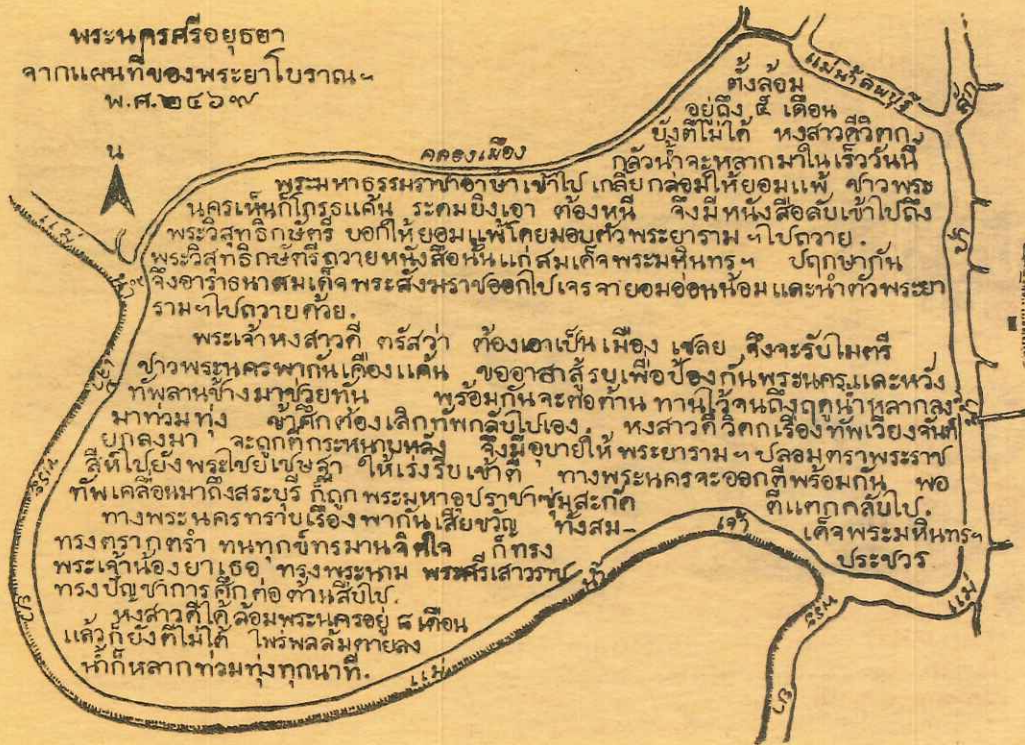 พระนครศรีอยุธยา
จากแผนที่ของพระยาโบราณฯ
พ.ศ.๒๔๖๙
น
คลองเมือง
แม่น้ำลพบุรี
ตั้งล้อม
อยู่ถึง ๕ เดือน
ยังตีไม่ได้ หงสาวดีวิตก
กลัวน้ำจะหลากมาในเร็ววันนี้
พระมหาธรรมราชาอาษาเข้าไป เกลี้ยกล่อมให้ยอมแพ้ ชาวพระ
นครเห็นก็โกรธแค้น ระดมยิงเอา ต้องหนี จึงมีหนังสือลับเข้าไปถึง
พระวิสุทธิกษัตรี บอกให้ยอมแพ้โดยมอบตัวพระยาราม ฯ ไปถวาย.
พระวิสุทธิกษัตรีถวายหนังสือนั้นแก่สมเด็จพระมหินทร ฯ ปฤกษากัน
จึงอาราธนาสมเด็จพระสังฆราชออกไปเจรจายอมอ่อนน้อมและนำตัวพระยา
รามฯไปถวายด้วย.
พระเจ้าหงสาวดี ตรัสว่า ต้องเอาเป็นเมือง เชลย จึงจะรับไมตรี
ชาวพระนครพากันเคืองแค้น ขออาสาสู้รบเพื่อป้องกันพระนครและหวัง
ทัพลานช้างมาช่วยทัน พร้อมกันจะต่อต้าน ทานไว้จนถึงฤดูน้ำหลากลง
มาท่วมทุ่ง ข้าศึกต้องเลิกทัพกลับไปเอง. หงสาวดีวิตกเรื่องทัพเวียงจันท์
ยกลงมา จะถูกตีกระหนาบหลัง จึงมีอุบายให้พระยาราม ฯ ปลอมตราพระราช
สีห์ไปยังพระไชยเชษฐา ให้เร่งรีบเข้าตี ทางพระนครจะออกตีพร้อมกัน พอ
ทัพเคลื่อนมาถึงสระบุรี ก็ถูกพระมหาอุปราชาซุ่มสะกัด ตีแตกกลับไป.
ทางพระนครทราบเรื่องพากันเสียขวัญ ทั้งสม-
เด็จพระมหินทรฯ
ทรงตรากตรำ ทนทุกข์ทรมานจิตใจ ก็ทรง
ประชวร
พระเจ้าน้องยาเธอ ทรงพระนาม พระศรีเสาวราช
ทรงบัญชาการศึกต่อต้านสืบไป.
หงสาวดีได้ล้อมพระนครอยู่ ๘ เดือน
แล้วก็ยังตีไม่ได้ ไพร่พลล้มตายลง
น้ำก็หลากท่วมทุ่งทุกนาที.
แม่ น้ำ เจ้า พระ ยา
แม่ น้ำ เจ้า พระ ยา
ป่า สัก